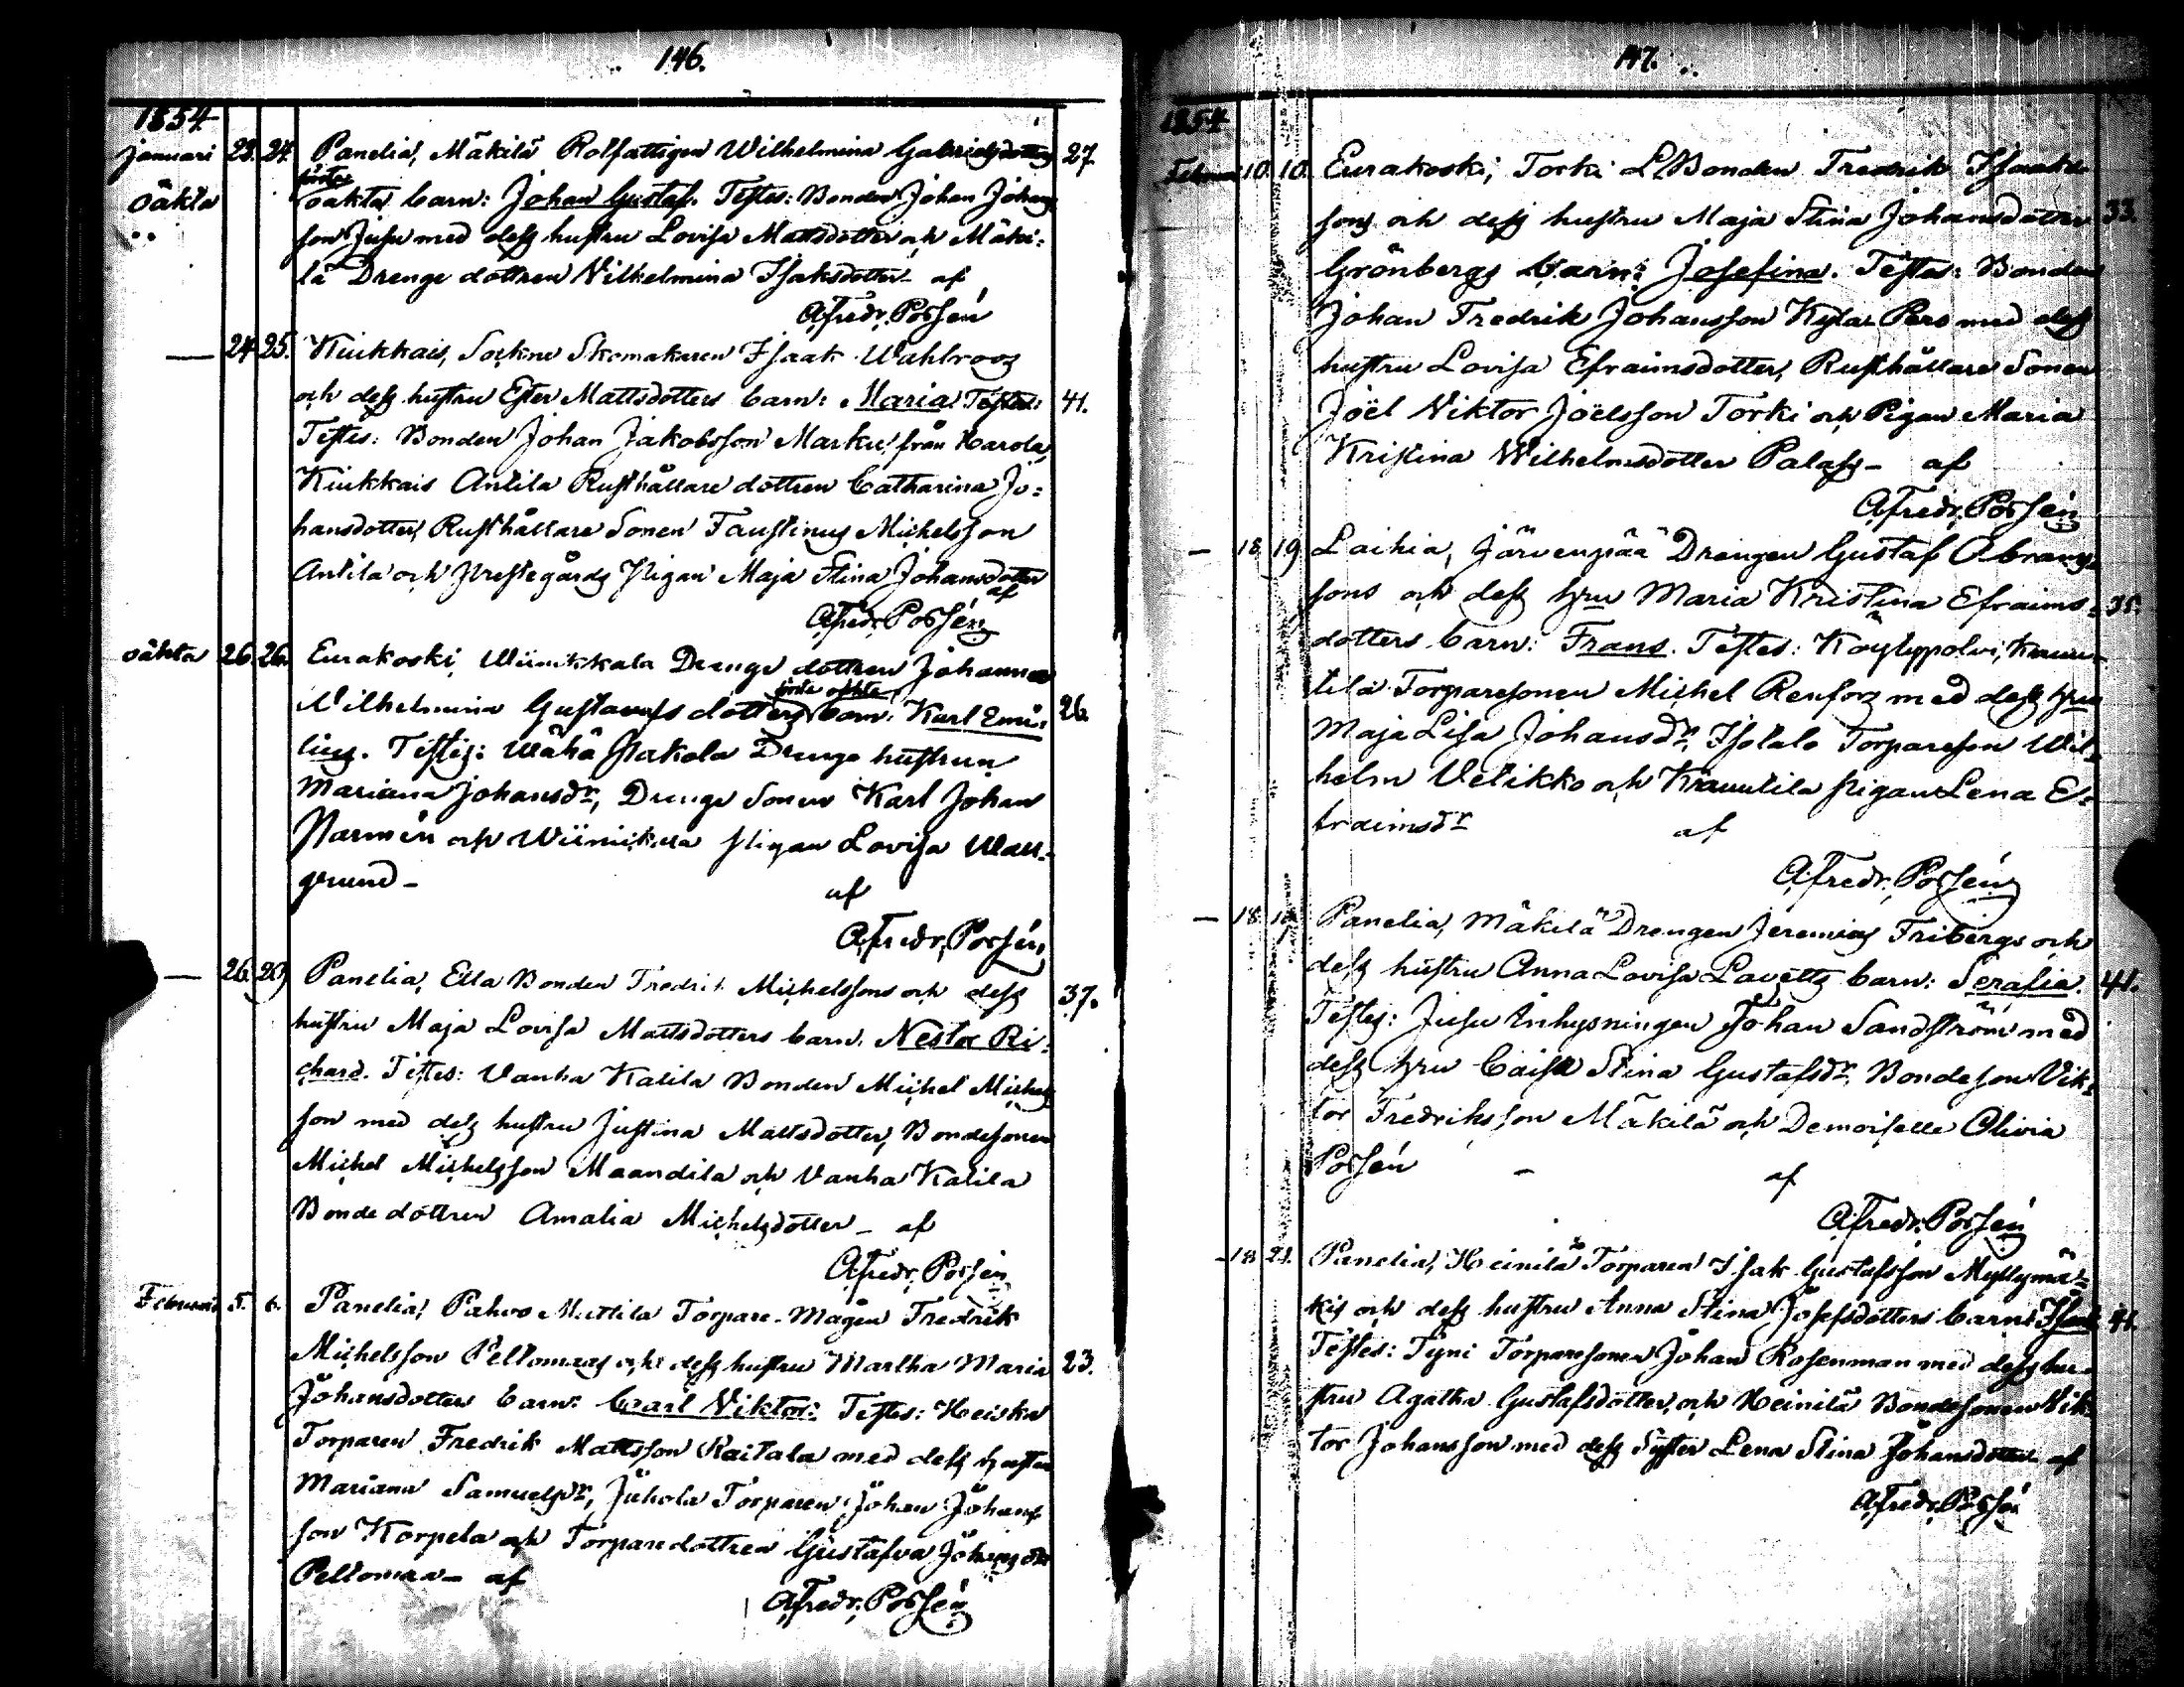 146.
1854
Januari 23. 24. Panelia, Mäkilä Rotfattigen Wilhelmina Gabrielsdotters 27.
Oäkta första oäkta barn: Johan Gustaf. Testes: Bonden Johan Johans-
son Jusu med dess hustru Lovisa Mattsdotter och Mäki-
lä Drenge dottren Vilhelmina Isaksdotter - af
A. Fredr. Possén
— 24. 25. Kiukkais, Sockne Skomakaren Isaak Wahlroos
och dess hustru Ester Mattsdotters barn: Maria. Testes: 41.
Testes: Bonden Johan Jakobsson Marku från Harola,
Kiukkais Antila Rusthållare dottren Catharina Jo-
hansdotter, Rusthållare Sonen Faustinus Michelsson
Antila och Prestegårds Pigan Maja Stina Johansdotter
af
A. Fredr. Possén
oäkta 26. 26. Eurakoski, Wiinikkala Drenge dottren Johanna
Vilhelmina Gustavas dotters första oäkta barn: Karl Emi- 26.
lius. Testes: Wähä Pakola Drenge hustrun
Mariana Johansdr, Drenge Sonen Karl Johan
Narmén och Wiinikala Pigan Lovisa Wall-
grund - af
A. Fredr. Possén
— 26. 29. Panelia, Ella Bonden Fredrik Michelssons och dess 37.
hustru Maja Lovisa Mattsdotters barn: Nestor Ri-
chard. Testes: Vanha Katila Bonden Michel Michels
son med dess hustru Justina Mattsdotter, Bondesonen
Michel Michelsson Maandila och Vanha Katila
Bonde dottren Amalia Michelsdotter - af
A. Fredr. Possén
Februari 5. 6. Panelia, Pahvo Mattila Torpare-Mågen Fredrik
Michelsson Peltomaas och dess hustru Martha Maria 23.
Johansdotters barn: Carl Viktor. Testes: Heisku
Torparen Fredrik Mattsson Raitala med dess hustru
Mariana Samuelsdr, Juhola Torparen Johan Johans
son Korpela och Torparedottren Gustafva Johansdr
Peltomaa - af
A. Fredr. Possén
147.
1854
Februari 10. 10. Eurakoski, Torki L. Bonden Fredrik Isaaks-
sons och dess hustru Maja Stina Johansdotter 33.
Grönbergs barn: Josefina. Testes: Bonden
Johan Fredrik Johansson Kylä-Pero med dess
hustru Lovisa Efraimsdotter, Rusthållare Sonen
Joël Viktor Joëlsson Torki och Pigan Maria
Kristina Wilhelmsdotter Palass - af
A. Fredr. Possén
— 18. 19. Laihia, Järvenpää Drengen Gustaf Abrams-
sons och dess hru Maria Kristina Efraims- 35.
dotters barn: Frans. Testes: Köyhypolvi, Krauu-
tila Torparesonen Michel Renfors med dess hru
Maja Lisa Johansdr, Isotalo Torpareson Wil-
helm Vetikko och Krauutila Pigan Lena E-
fraimsdr af
A. Fredr. Possén
— 18. Panelia, Mäkilä Drengen Jeremias Fribergs och
dess hustru Anna Lovisa Lavetts barn: Serafia. 41.
Testes: Jusu Inhysningen Johan Sandström med
dess hru Caisa Stina Gustafsdr, Bondeson Vik-
tor Fredriksson Mäkilä och Demoiselle Olivia
Possén - af
A. Fredr. Possén
- 18. 21. Panelia, Heinilä Torparen Isak Gustafsson Myllymä-
kis och dess hustru Anna Stina Josefsdotters barn: Isaak 41.
Testes: Tyni Torparesonen Johan Rosenman med dess hu-
stru Agatha Gustafsdotter, och Heinilä Bondesonen Vik-
tor Johansson med dess Syster Lena Stina Johansdotter af
A. Fredr. Possén